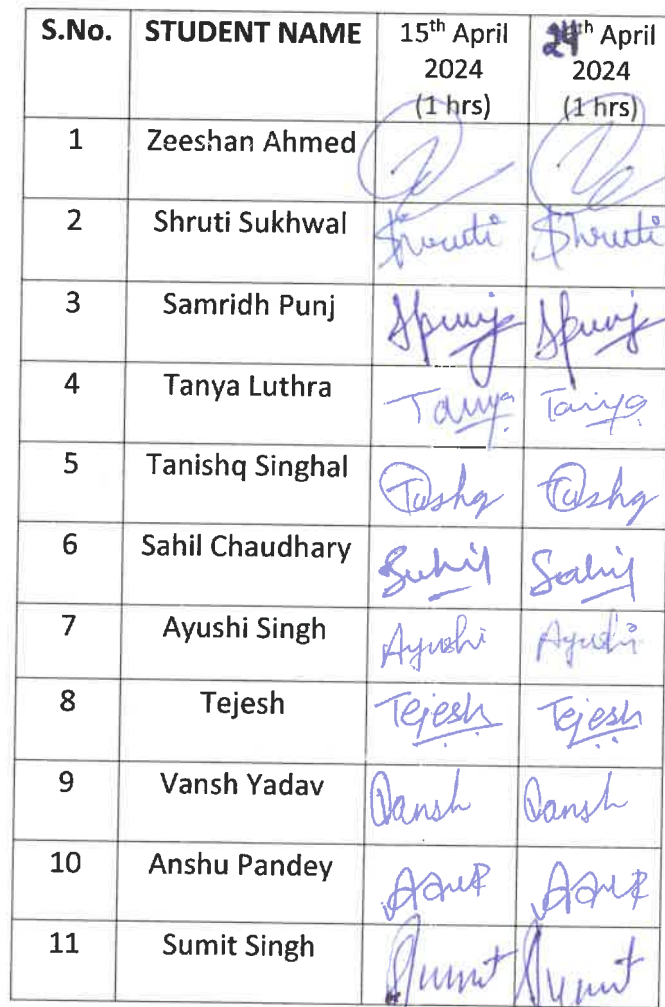 S.No. STUDENT NAME 15th April 24th April
2024 2024
(1 hrs) (1 hrs)
1 Zeeshan Ahmed
2 Shruti Sukhwal Shruti Shruti
3 Samridh Punj SPunj SPunj
4 Tanya Luthra Tanya Tanya
5 Tanishq Singhal Tashq Tashq
6 Sahil Chaudhary Sahil Sahil
7 Ayushi Singh Ayushi Ayushi
8 Tejesh Tejesh Tejesh
9 Vansh Yadav Vansh Vansh
10 Anshu Pandey
11 Sumit Singh Sumit Sumit